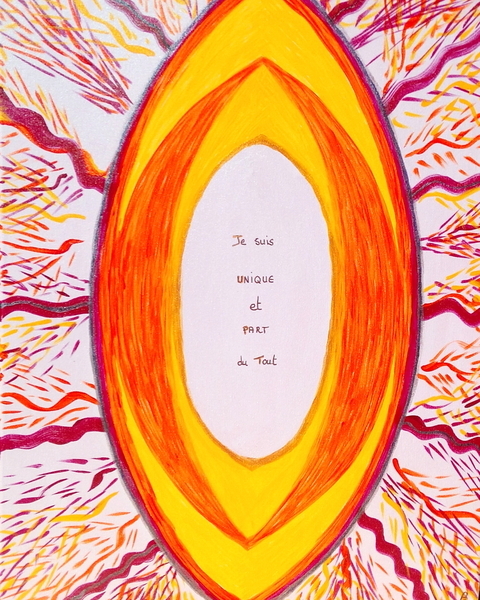 Je suis
UNIQUE
et
PART
du Tout